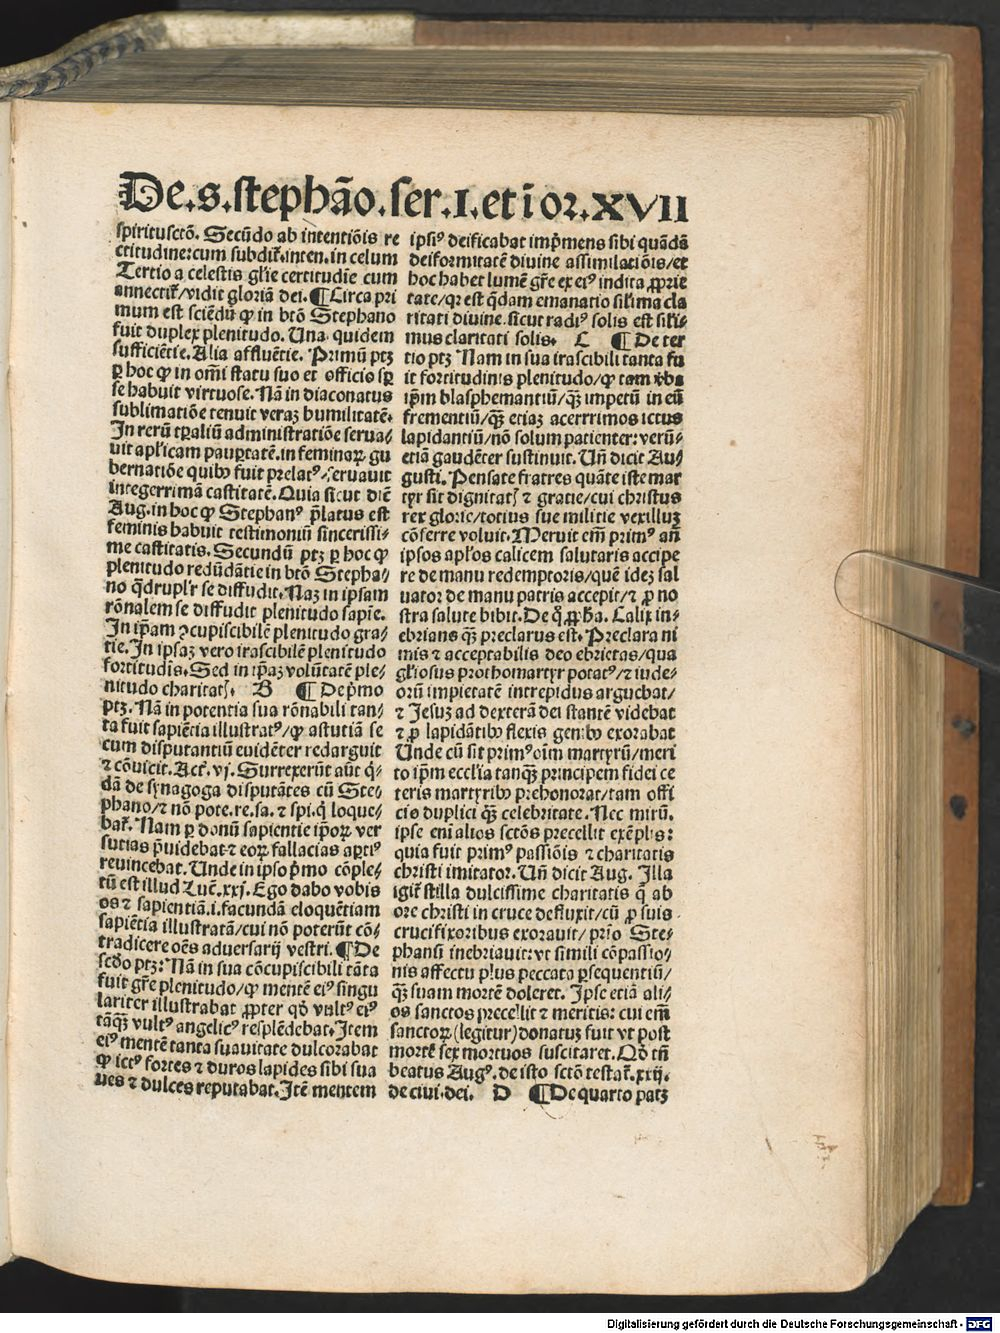 De.s.stephão.ser.I.et ior.XVII
spiritusctõ. Secũdo ab intentiõis re
ctitudine:cum subdit̃.inten.in celum
Tertio a celestis gl̃ie certitudĩe cum
annectit̃/vidit gloriã dei. ¶Circa pri
mum est sciẽdũ ꝙ in btõ Stephano
fuit duplex plenitudo. Una quidem
sufficiẽtie. Alia affluẽtie. Primũ ptꝫ
ꝑ hoc ꝙ in om̃i statu suo et officio sꝑ
se habuit virtuose. Nã in diaconatus
sublimatiõe tenuit veraꝫ humilitatẽ.
In rerũ tꝑaliũ administratiõe serua⸗
uit apl̃icam pauꝑtatẽ. in feminaꝝ gu
bernatiõe quibꝰ fuit prelatꝰ/seruauit
integerrimã castitatẽ. Quia sicut dic̃
Aug. in hoc ꝙ Stephanꝰ p̃latus est
feminis habuit testimoniũ sincerissi⸗
me castitatis. Secundũ ptꝫ ꝑ hoc ꝙ
plenitudo redũdãtie in btõ Stepha⸗
no q̃drupl'r se diffudit. Naꝫ in ipsam
rõnalem se diffudit plenitudo sapie.
In ip̃am ꝯcupiscibilẽ plenitudo gra⸗
tie. In ipsaꝫ vero irascibilẽ plenitudo
fortitudĩs. Sed in ip̃aꝫ volũtatẽ ple⸗
nitudo charitatꝭ. B ¶De p̃mo
ptꝫ. Nã in potentia sua rõnabili tan⸗
ta fuit sapiẽtia illustratꝰ/ꝙ astutiã se
cum disputantiũ euidẽter redarguit
⁊ cõuicit. Act̃. vj. Surrexerũt aũt q̃⸗
dã de synagoga disputãtes cũ Ste⸗
phano/⁊ nõ pote.re.sa. ⁊ spi.q̃ loque⸗
bat̃. Nam ꝑ donũ sapientie ip̃oꝝ ver
sutias p̃uidebat ⁊ eoꝝ fallacias aꝑtiꝰ
reuincebat. Unde in ipso p̃mo cõple⸗
tũ est illud Luc̃.xxj. Ego dabo vobis
os ⁊ sapientiã.i.facundã eloquẽtiam
sapiẽtia illustratã/cui nõ poterũt cõ⸗
tradicere oẽs aduersarij vestri. ¶De
scd̃o ptꝫ: Nã in sua cõcupiscibili tãta
fuit gr̃e plenitudo/ꝙ mentẽ eiꝰ singu
lariter illustrabat ꝓpter qd̃ vultꝰ eiꝰ
tãqꝫ̃ vultꝰ angelicꝰ resplẽdebat. Item
eiꝰ mentẽ tanta suauitate dulcorabat
ꝙ ictꝰ fortes ⁊ duros lapides sibi sua
ues ⁊ dulces reputabat. Itẽ mentem
ipsiꝰ deificabat imp̃mens sibi quãdã
deiformitatẽ diuine assimilatiõis/et
hoc habet lumẽ gr̃e ex eiꝰ indita ꝓprie
tate/qꝛ est q̃dam emanatio sil'ima cla
ritati diuine. sicut radiꝰ solis est sil'i⸗
mus claritati solis. C ¶De ter
tio ptꝫ Nam in sua irascibili tanta fu
it fortitudinis plenitudo/ꝙ tam v̾ba
ip̃m blasphemantiũ/qꝫ̃ impetũ in eũ
frementiũ/qꝫ̃ etiaꝫ acerrrimos ictus
lapidantiũ/nõ solum patienter: verũ⸗
etiã gaudẽter sustinuit. Uñ dicit Au⸗
gusti. Pensate fratres quãte iste mar
tyr sit dignitatꝭ ⁊ gratie/cui christus
rex glorie/totius sue militie vexilluꝫ
cõferre voluit. Meruit em̃ primꝰ añ
ipsos apl'os calicem salutaris accipe
re de manu redemptoris/quẽ ideꝫ sal
uator de manu patris accepit/⁊ ꝓ no
stra salute bibit. De q̊ ꝓpha. Calix in⸗
ebrians qꝫ̃ preclarus est. Preclara ni
mis ⁊ acceptabilis deo ebrietas/qua
gl'iosus prothomartyr potatꝰ/⁊ iude⸗
orũ impietatẽ intrepidus arguebat/
⁊ Jesuꝫ ad dexterã dei stantẽ videbat
⁊ ꝓ lapidãtibꝰ flexis genibꝰ exorabat
Unde cũ sit primꝰ oĩm martyrũ/meri
to ip̃m eccl'ia tanqꝫ̃ principem fidei ce
teris martyribꝰ prehonorat/tam offi
cis duplici qꝫ̃ celebritate. Nec mirũ.
ipse eni alios sctõs precellit exẽplis:
quia fuit primꝰ passiõis ⁊ charitatis
christi imitator. Uñ dicit Aug. Illa
igit̃ stilla dulcissime charitatis q̃ ab
ore christi in cruce defluxit/cũ ꝓ suis
crucifixoribus exorauit/ prĩo Ste⸗
phanũ inebriauit: vt simili cõpassio⸗
nis affectu plus peccata ꝑsequentiũ/
qꝫ̃ suam mortẽ doleret. Ipse etiã ali⸗
os sanctos precellit ⁊ meritis: cui em̃
sanctoꝝ (legitur) donatuꝫ fuit vt post
mortẽ sex mortuos suscitaret. Qd̃ tñ
beatus Augꝰ. de isto sctõ testat̃. xxij.
de ciui.dei. D ¶De quarto patꝫ
Digitalisierung gefördert durch die Deutsche Forschungsgemeinschaft - DFG